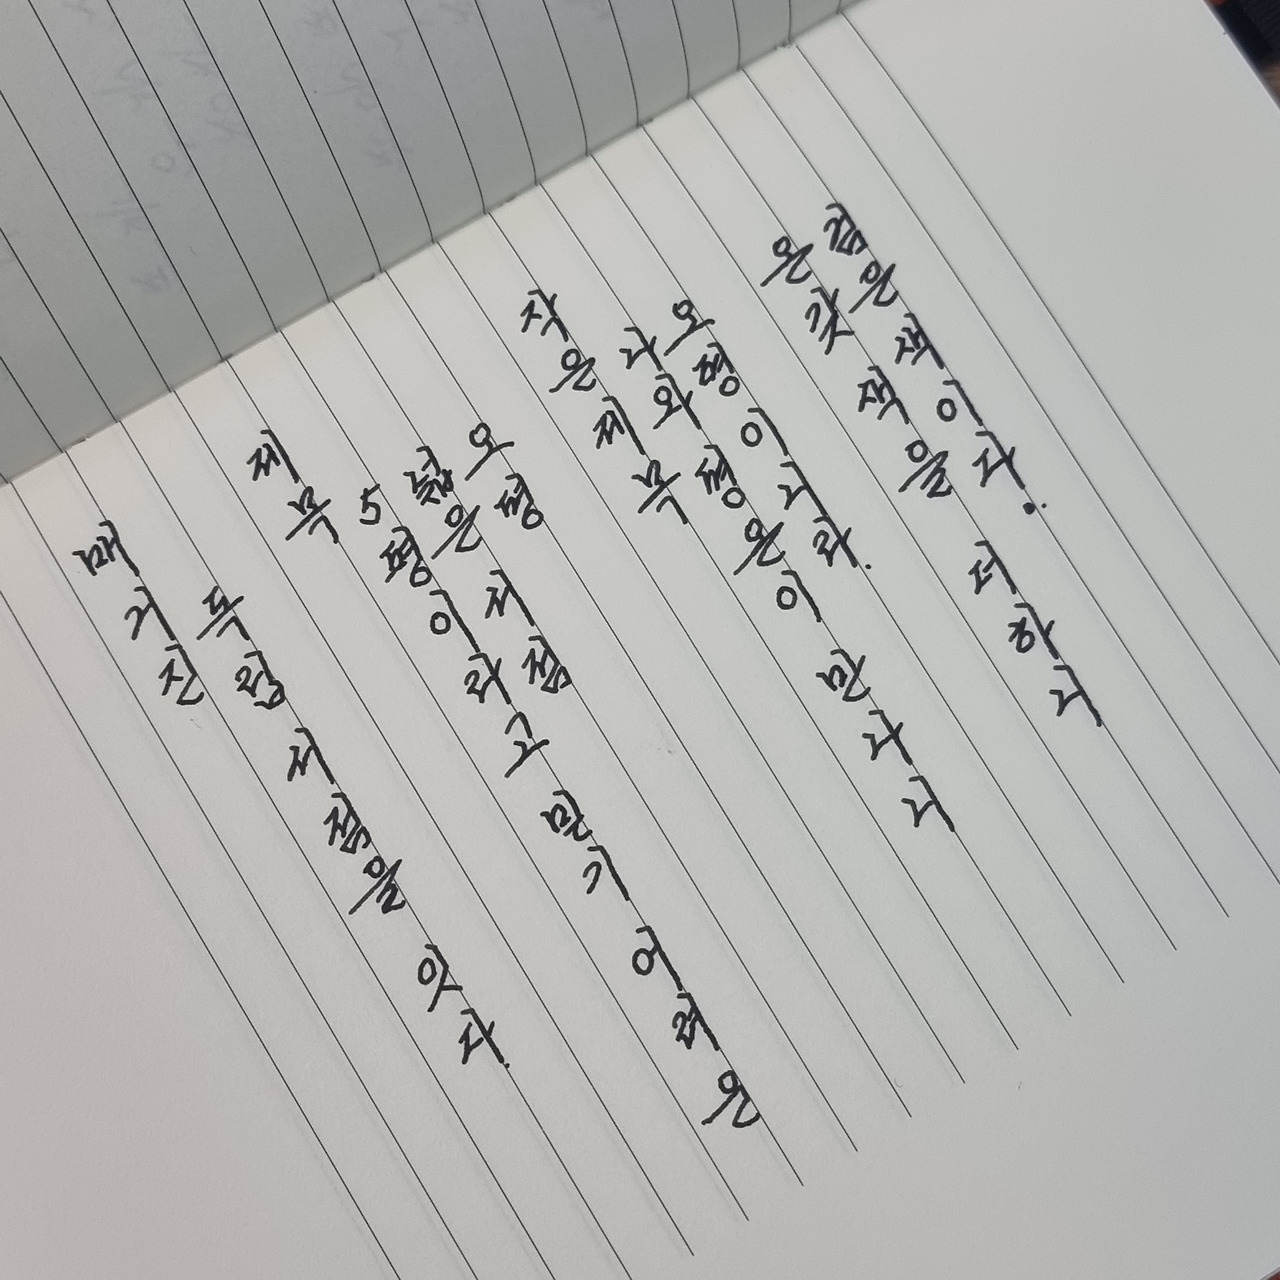 매거진
독립 서점을 잇다.
제목
5평이라고 믿기 어려운
넓은 서점
오평
작은 제목
나와 평온이 만나니
오평이니라.
온갖 색을 더하니
검은색이다.